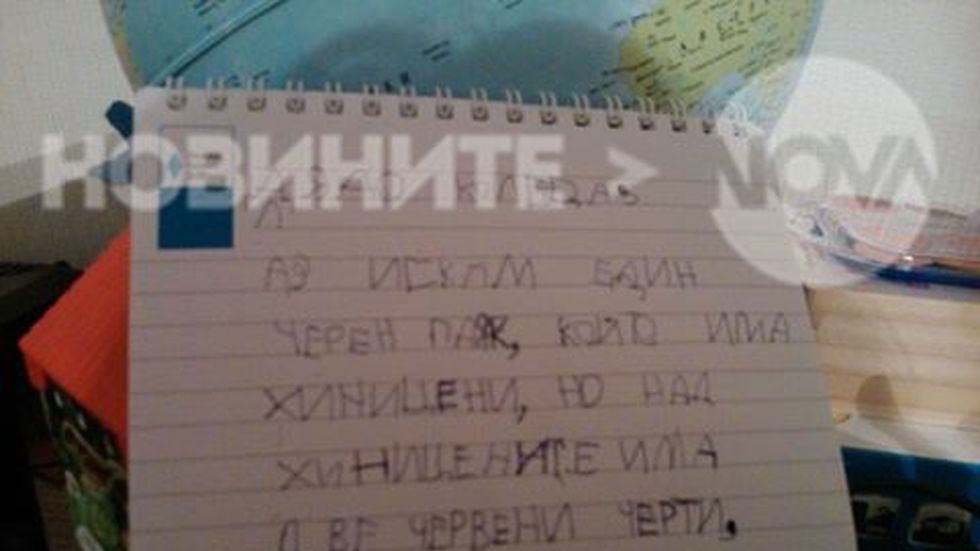 НОВИНИТЕ > NOVA
АЗ ИСКАМ ЕДИН
ЧЕРЕН ПАЖ, КОЙТО ИМА
ХИНИЦЕНИ, НО НАД
ХИНИЦЕНИТЕ ИМА
ДВЕ ЧЕРВЕНИ ЧЕРТИ.